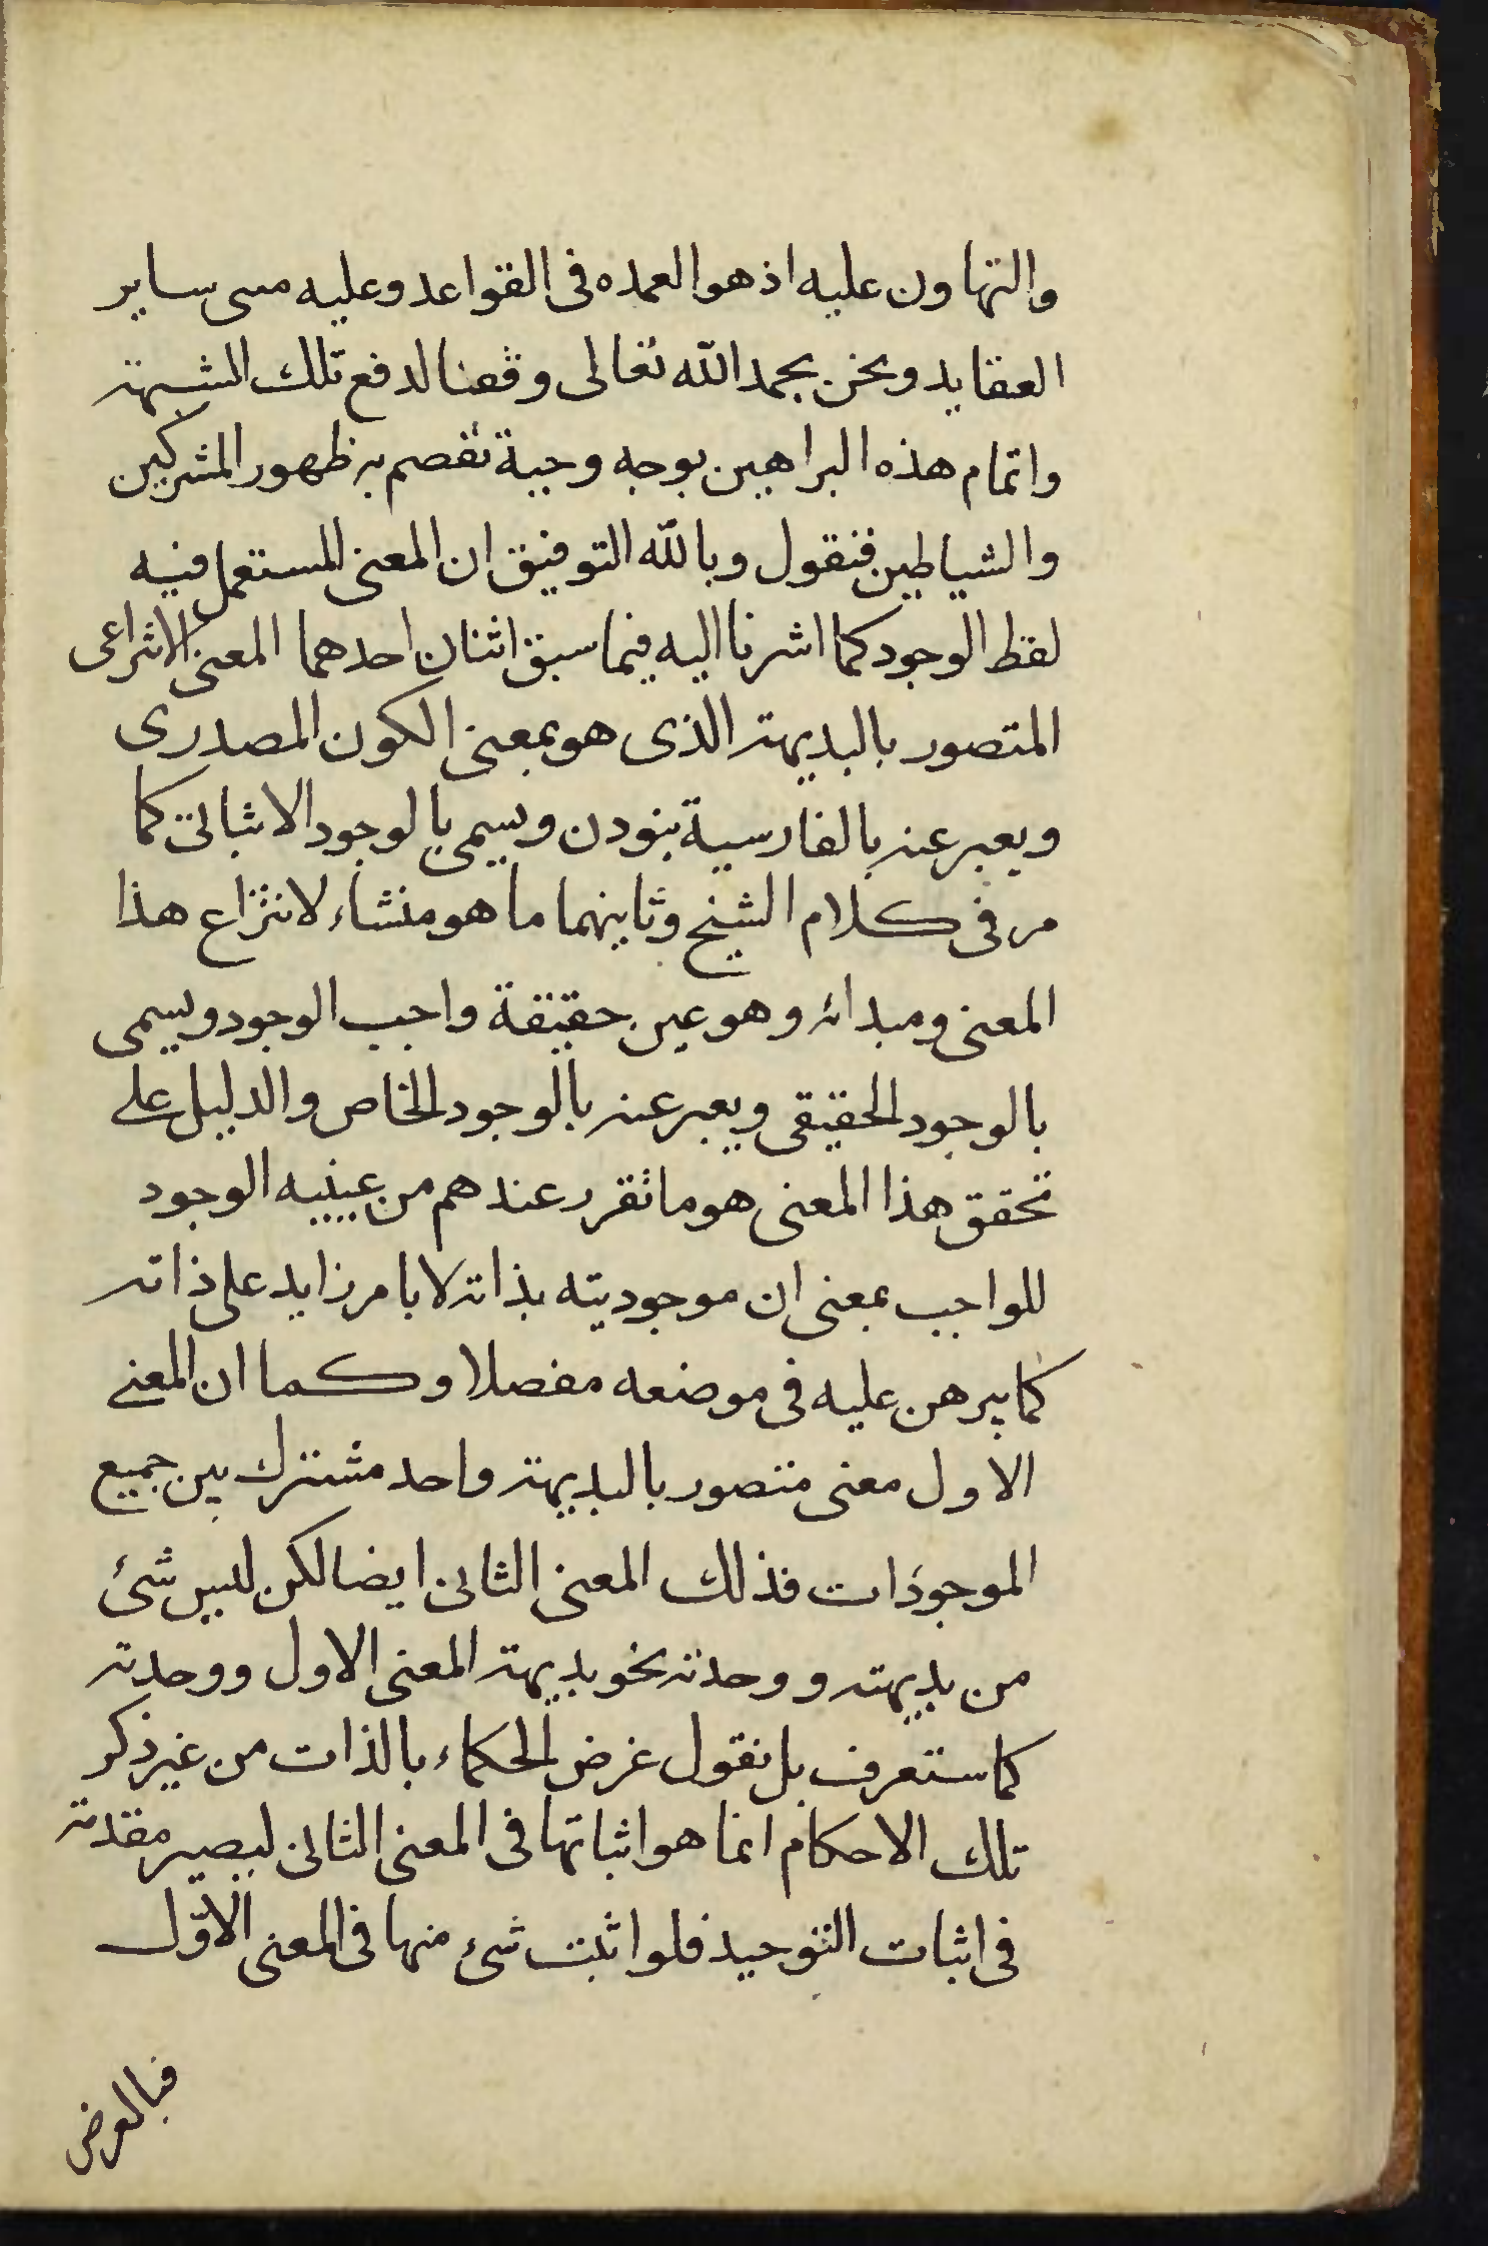 والتهاون عليه اذ هو العمده فى القواعد وعليه مبنى ساير
العقايد ونحن بحمد الله تعالى وفقنا لدفع تلك الشبهة
واتمام هذه البراهين بوجه وجية تقصم به ظهور المشركين
والشياطين فنقول وبالله التوفيق ان المعنى المستعمل فيه
لفظ الوجود كما اشرنا اليه فيما سبق اثنان احدهما المعنى الانتزاعى
المتصور بالبديهة الذى هو بمعنى الكون المصدرى
ويعبر عنه بالفارسية ببودن ويسمى بالوجود الاثباتى كما
مر فى كلام الشيخ وثانيهما ما هو منشاء لانتزاع هذا
المعنى ومبدائه وهو عين حقيقة واجب الوجود ويسمى
بالوجود الحقيقى ويعبر عنه بالوجود الخاص والدليل على
تحقق هذا المعنى هو ما تقرر عندهم من عينيه الوجود
للواجب بمعنى ان موجوديته بذاته لا بامر زايد على ذاته
كما يبرهن عليه فى موضعه مفصلا وكما ان المعنى
الاول معنى متصور بالبديهة واحد مشترك بين جميع
الموجودات فذلك المعنى الثانى ايضا لكن ليس شئ
من بديهته ووحدته نحو بديهة المعنى الاول ووحدته
كما ستعرف بل نقول غرض الحكماء بالذات من غير ذكر
تلك الاحكام انما هو اثباتها فى المعنى الثانى ليصير مقدمة
فى اثبات التوحيد فلو اثبت شئ منها فى المعنى الاول
فبالعرض